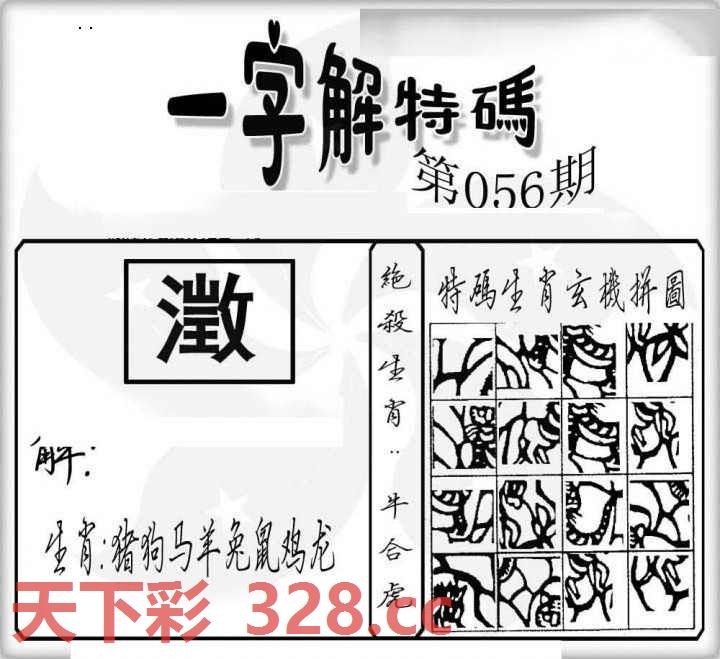 一字解特碼
第056期
澂
解:
生肖:猪狗马羊兔鼠鸡龙
絶殺生肖:牛合虎
特碼生肖玄機拼圖
天下彩 328.cc